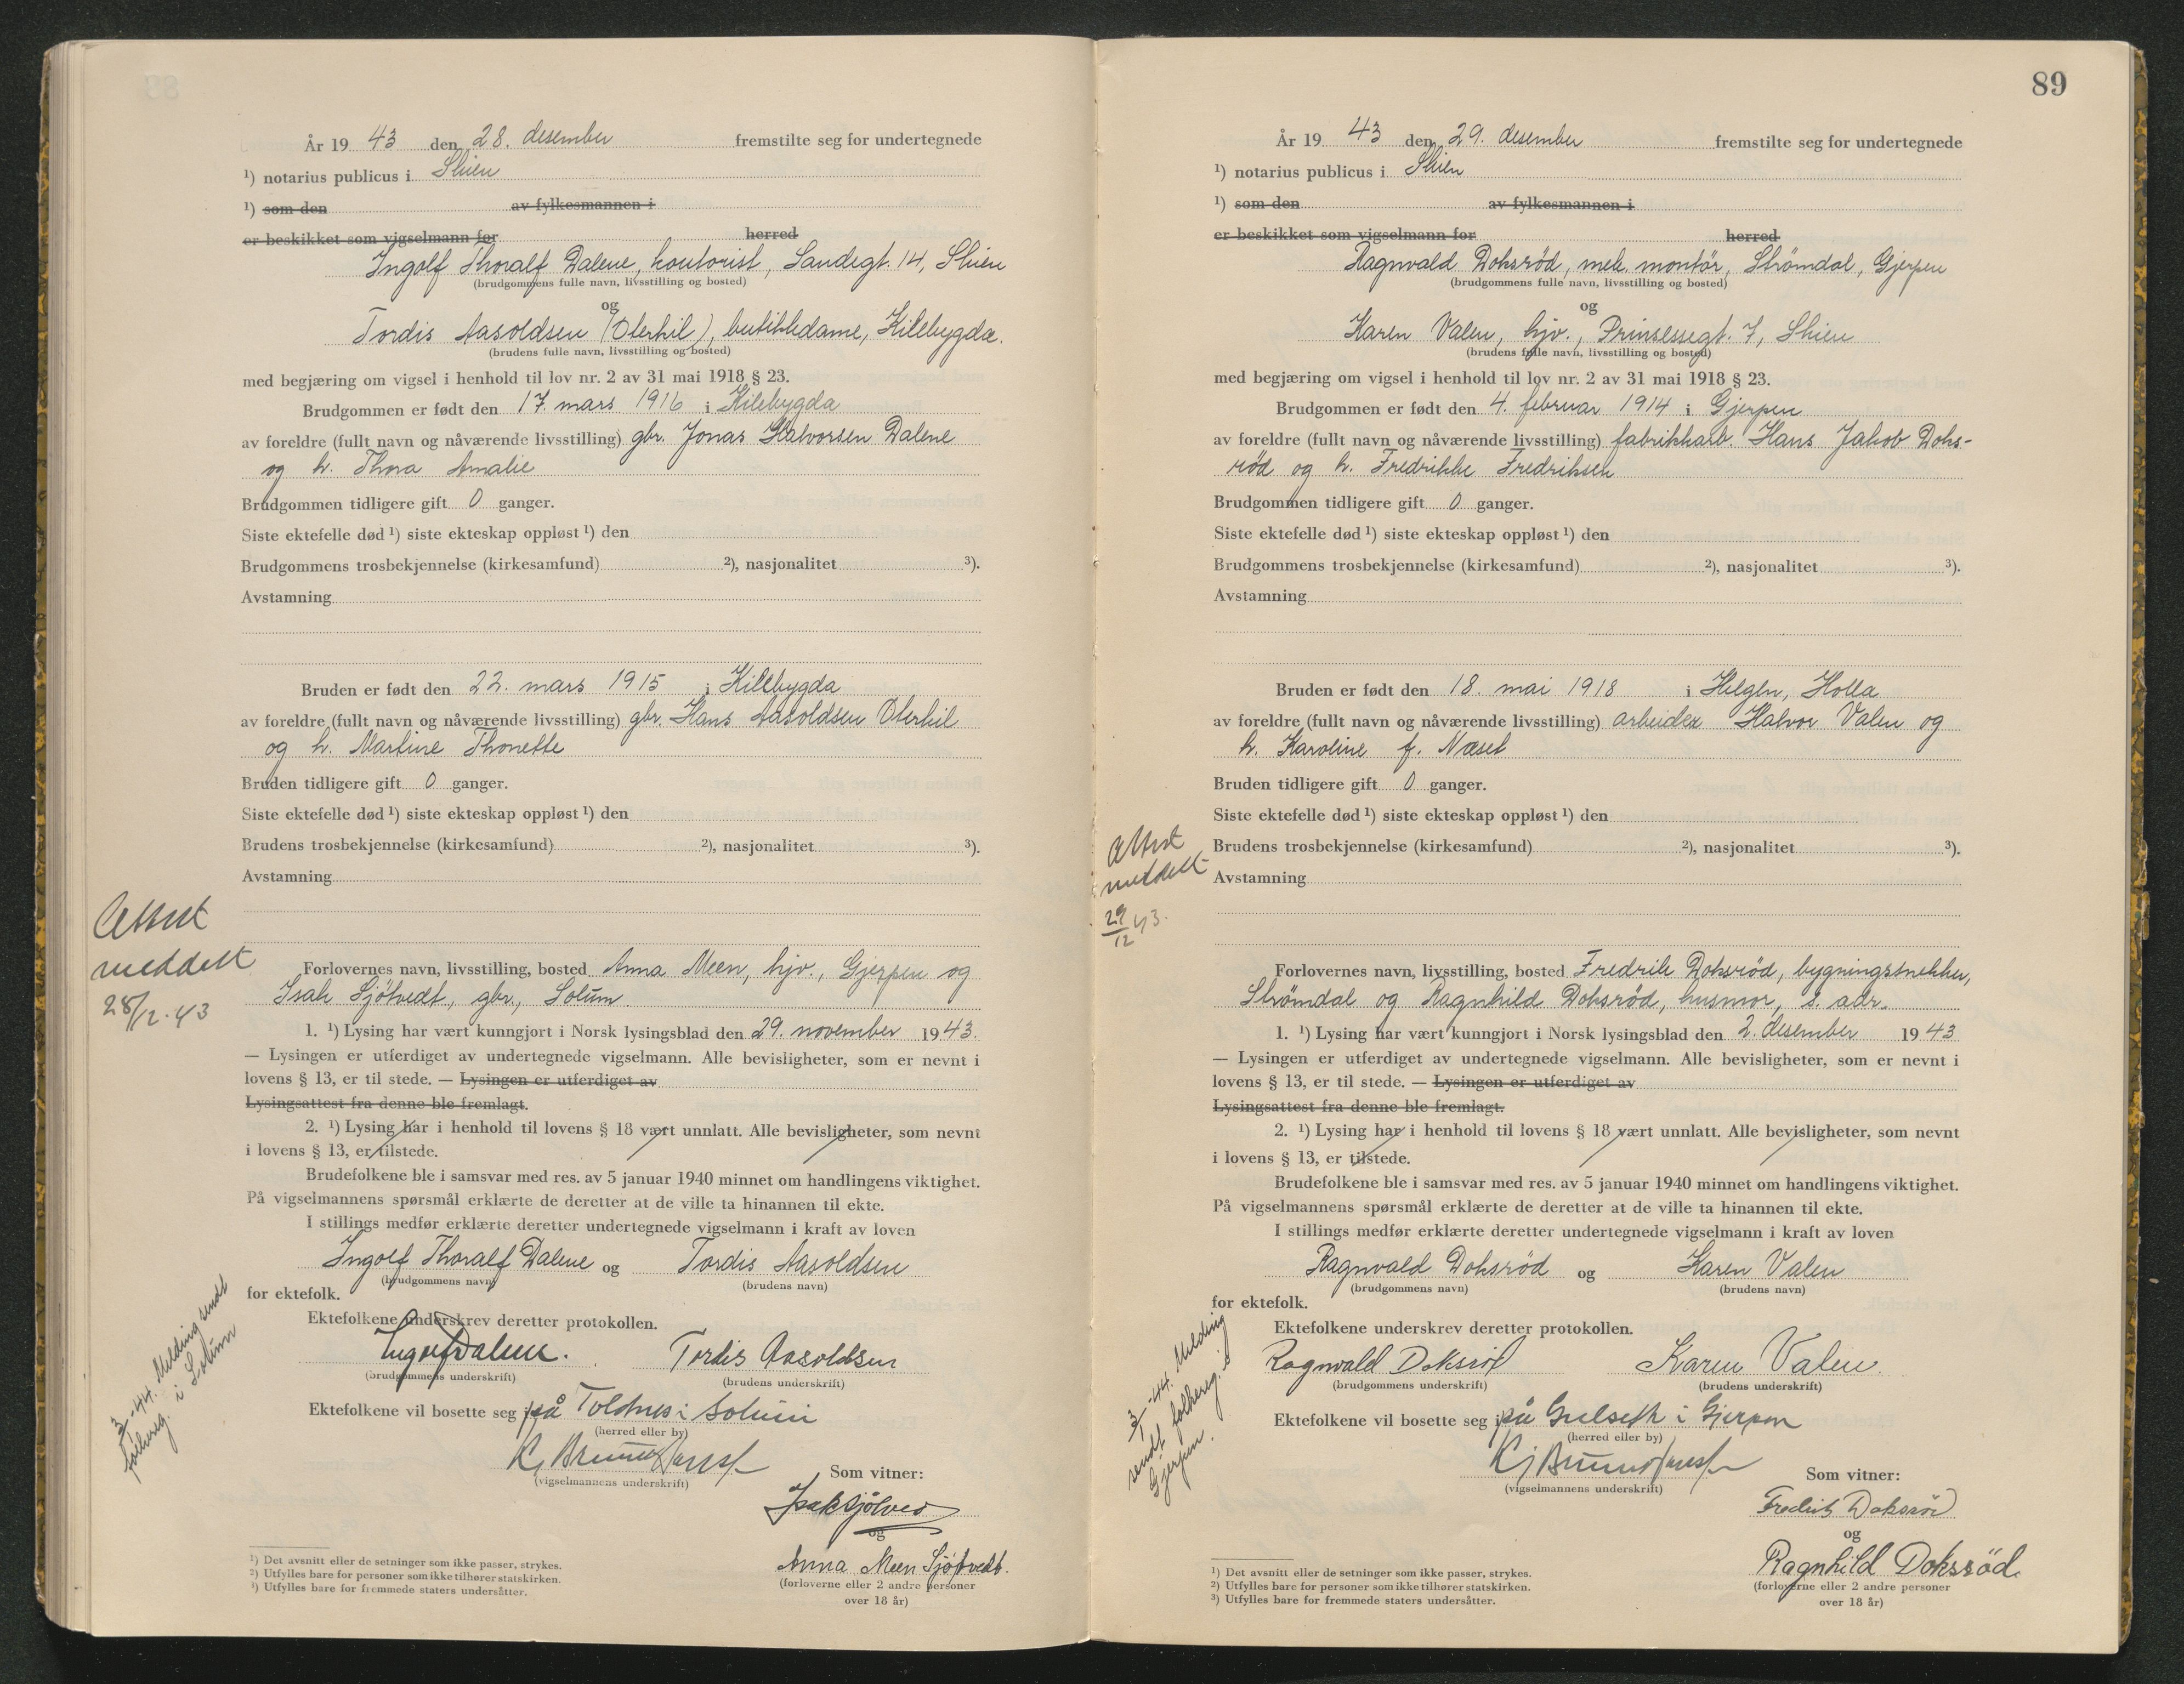 År 19 43 den 28. desember fremstilte seg for undertegnede
¹) notarius publicus i Skien
¹) som den av fylkesmannen i
er beskikket som vigselmann for herred
Ingolf Thoralf Dalene, kontorist, Landegt. 14, Skien
(brudgommens fulle navn, livsstilling og bosted)
og
Tordis Aasoldsen (Oterkil), butikkdame, Kilebygda.
(brudens fulle navn, livsstilling og bosted)
med begjæring om vigsel i henhold til lov nr. 2 av 31 mai 1918 § 23.
Brudgommen er født den 17. mars 1916 i Kilebygda
av foreldre (fullt navn og nåværende livsstilling) gbr. Jonas Halvorsen Dalene
og h. Thora Amalie
Brudgommen tidligere gift 0 ganger.
Siste ektefelle død ¹) siste ekteskap oppløst ¹) den
Brudgommens trosbekjennelse (kirkesamfund) ²), nasjonalitet ³).
Avstamning
Bruden er født den 22. mars 1915 i Kilebygda
av foreldre (fullt navn og nåværende livsstilling) gbr. Hans Aasoldsen Oterkil
og h. Martine Thonette
Bruden tidligere gift 0 ganger.
Siste ektefelle død ¹) siste ekteskap oppløst ¹) den
Brudens trosbekjennelse (kirkesamfund) ²), nasjonalitet ³).
Avstamning
Attest
meddelt
28/12.43
Forlovernes navn, livsstilling, bosted Anna Meen, hjv., Gjerpen og
Isak Sjötvedt, gbr., Solum
1. ¹) Lysing har vært kunngjort i Norsk lysingsblad den 29. november 1943.
— Lysingen er utferdiget av undertegnede vigselmann. Alle bevisligheter, som er nevnt i
lovens § 13, er til stede. — Lysingen er utferdiget av
Lysingsattest fra denne ble fremlagt.
2. ¹) Lysing har i henhold til lovens § 18 vært unnlatt. Alle bevisligheter, som nevnt
i lovens § 13, er tilstede.
Brudefolkene ble i samsvar med res. av 5 januar 1940 minnet om handlingens viktighet.
På vigselmannens spørsmål erklærte de deretter at de ville ta hinannen til ekte.
I stillings medfør erklærte deretter undertegnede vigselmann i kraft av loven
Ingolf Thoralf Dalene og Tordis Aasoldsen
(brudgommens navn) (brudens navn)
for ektefolk.
Ektefolkene underskrev deretter protokollen.
Ingolf Dalene. Tordis Aasoldsen
(brudgommens underskrift) (brudens underskrift)
Ektefolkene vil bosette seg i på Toldnes i Solum
(herred eller by)
3/1-44. Melding sendt
folkereg. i Solum
(vigselmannens underskrift)
Som vitner:
Isak Sjötved
og
Anna Meen Sjøtvedt.
(forloverne eller 2 andre personer
over 18 år)
¹) Det avsnitt eller de setninger som ikke passer, strykes.
²) Utfylles bare for personer som ikke tilhører statskirken.
³) Utfylles bare for fremmede staters undersåtter.
89
År 19 43 den 29. desember fremstilte seg for undertegnede
¹) notarius publicus i Skien
¹) som den av fylkesmannen i
er beskikket som vigselmann for herred
Ragnvald Doksröd, mek. montör, Strömdal, Gjerpen
(brudgommens fulle navn, livsstilling og bosted)
og
Karen Valen, hjv., Prinsessegt. 7, Skien
(brudens fulle navn, livsstilling og bosted)
med begjæring om vigsel i henhold til lov nr. 2 av 31 mai 1918 § 23.
Brudgommen er født den 4. februar 1914 i Gjerpen
av foreldre (fullt navn og nåværende livsstilling) fabrikkarb. Hans Jakob Doks-
röd og h. Fredrikke Fredriksen
Brudgommen tidligere gift 0 ganger.
Siste ektefelle død ¹) siste ekteskap oppløst ¹) den
Brudgommens trosbekjennelse (kirkesamfund) ²), nasjonalitet ³).
Avstamning
Bruden er født den 18. mai 1918 i Helgen, Holla
av foreldre (fullt navn og nåværende livsstilling) arbeider Halvor Valen og
h. Karoline f. Næset
Bruden tidligere gift 0 ganger.
Siste ektefelle død ¹) siste ekteskap oppløst ¹) den
Brudens trosbekjennelse (kirkesamfund) ²), nasjonalitet ³).
Avstamning
Attest
meddelt
29/12 43.
Forlovernes navn, livsstilling, bosted Fredrik Doksröd, bygningssnekker,
Strömdal og Ragnhild Doksröd, husmor, s. adr.
1. ¹) Lysing har vært kunngjort i Norsk lysingsblad den 2. desember 1943
— Lysingen er utferdiget av undertegnede vigselmann. Alle bevisligheter, som er nevnt i
lovens § 13, er til stede. — Lysingen er utferdiget av
Lysingsattest fra denne ble fremlagt.
2. ¹) Lysing har i henhold til lovens § 18 vært unnlatt. Alle bevisligheter, som nevnt
i lovens § 13, er tilstede.
Brudefolkene ble i samsvar med res. av 5 januar 1940 minnet om handlingens viktighet.
På vigselmannens spørsmål erklærte de deretter at de ville ta hinannen til ekte.
I stillings medfør erklærte deretter undertegnede vigselmann i kraft av loven
Ragnvald Doksröd og Karen Valen
(brudgommens navn) (brudens navn)
for ektefolk.
Ektefolkene underskrev deretter protokollen.
Ragnvald Doksröd Karen Valen.
(brudgommens underskrift) (brudens underskrift)
Ektefolkene vil bosette seg i på Gulseth i Gjerpen
(herred eller by)
3/1-44. Melding
sendt folkereg. i
Gjerpen.
(vigselmannens underskrift)
Som vitner:
Fredrik Doksröd
og
Ragnhild Doksröd.
(forloverne eller 2 andre personer
over 18 år)
¹) Det avsnitt eller de setninger som ikke passer, strykes.
²) Utfylles bare for personer som ikke tilhører statskirken.
³) Utfylles bare for fremmede staters undersåtter.